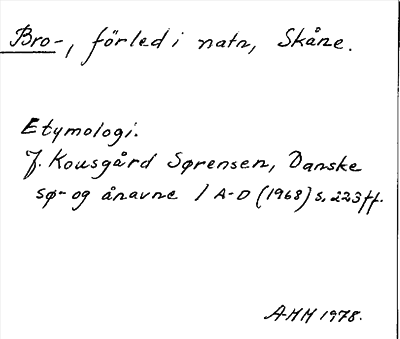 Bro-, förled i natn, Skåne.
Etymologi.
J. Kousgård Sørensen, Danske
sø- og ånavne 1 A-D (1968) s. 223 ff.
AMM 1978.